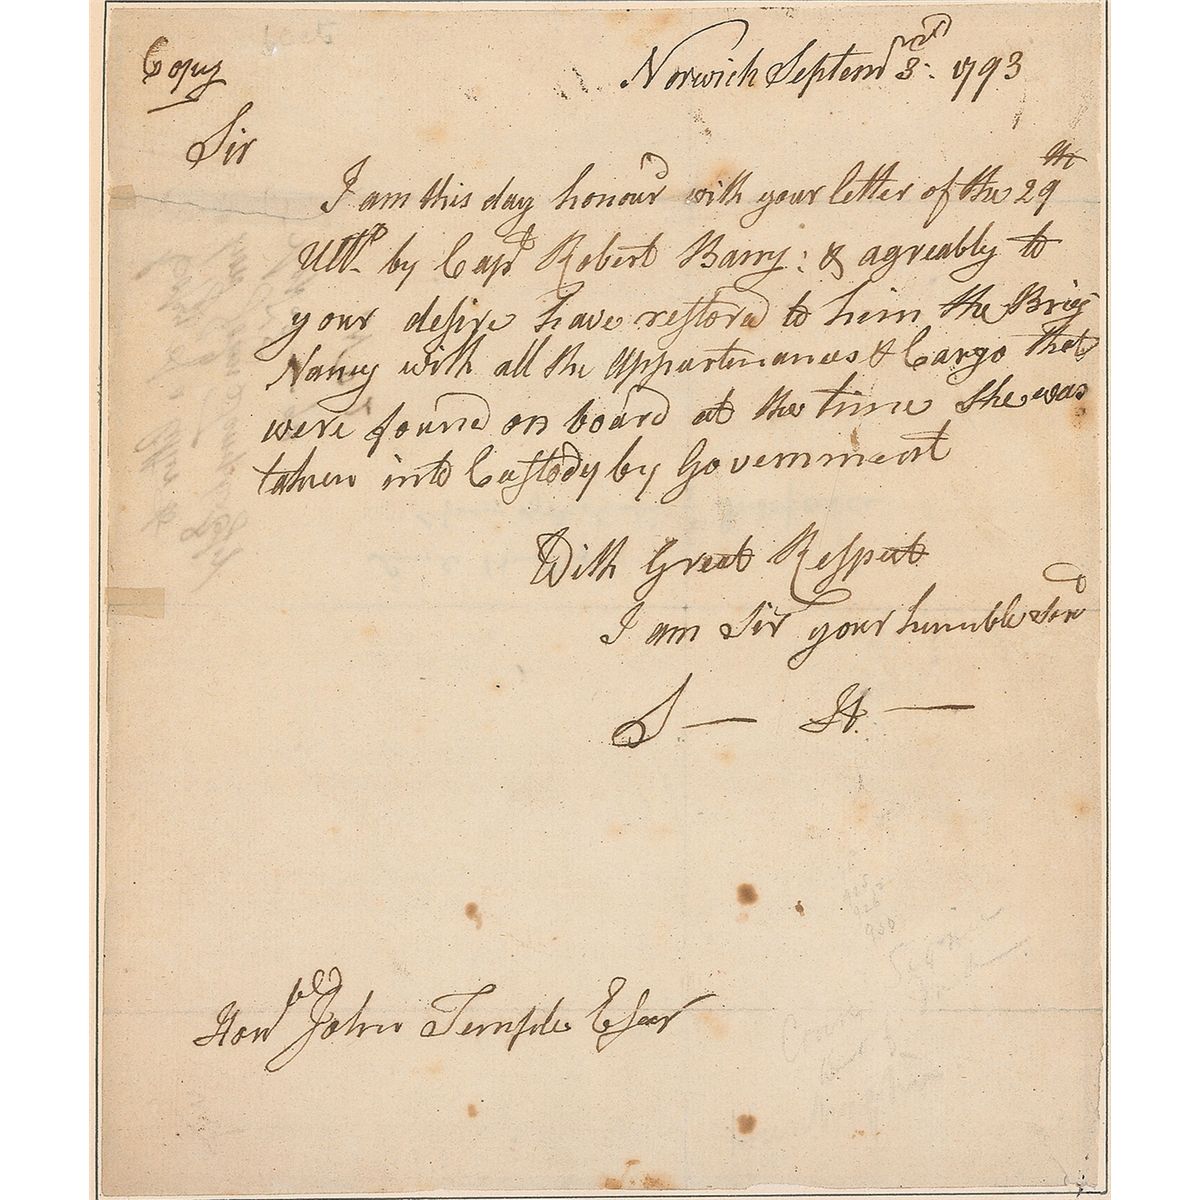 Copy
Norwich Septemr 3rd. 1793
Sir
I am this day honour'd with your letter of the 29th
Ulto. by Capt Robert Barry: & agreably to
your desire have restored to him the Brig
Nancy with all the Appartenances & Cargo that
were found on board at the time she was
taken into Custody by Government
With Great Respect
I am Sir your humble Servd
S — H. —
Honbld John Temple Esqr